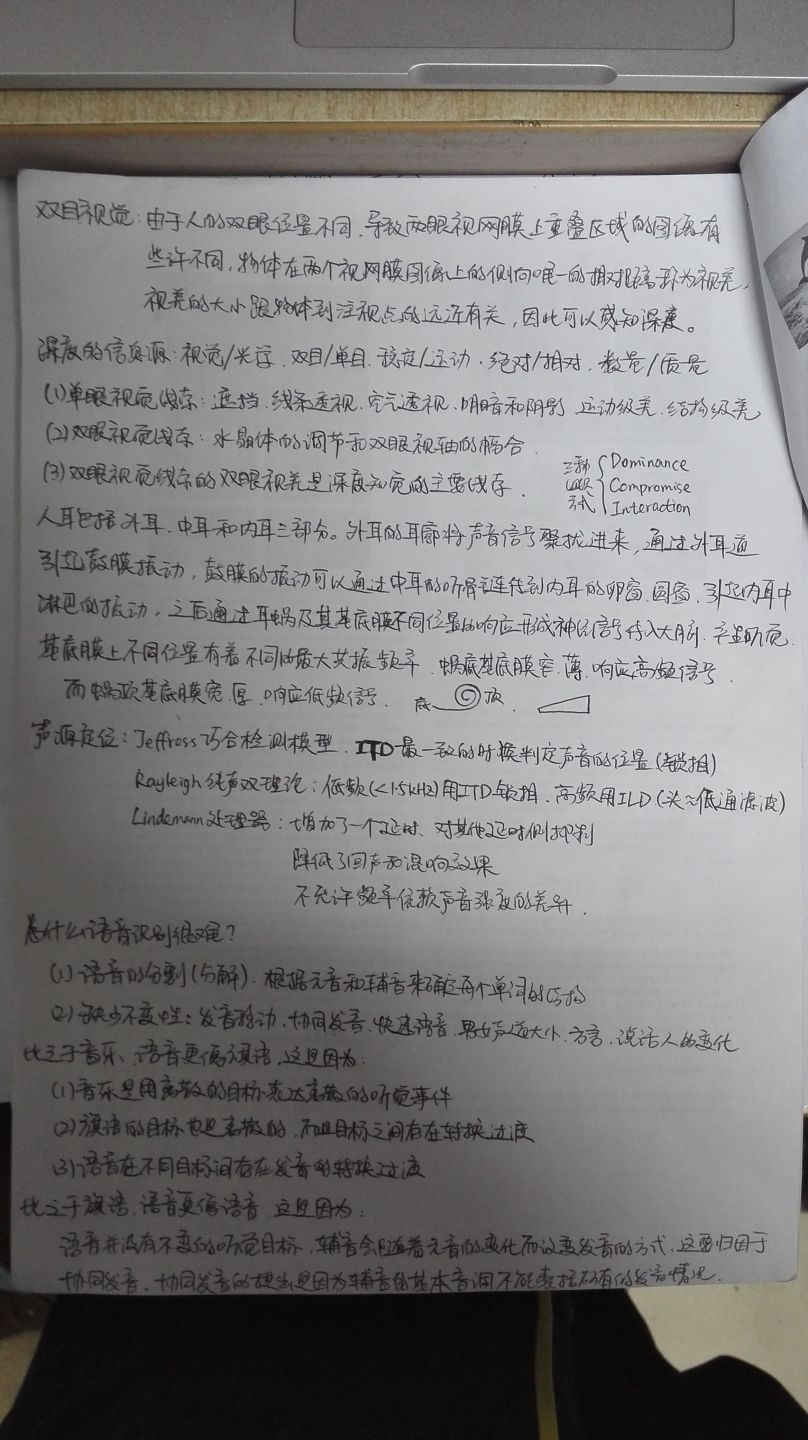 双目视觉：由于人的双眼位置不同，导致两眼视网膜上重叠区域的图像有
些许不同，物体在两个视网膜图像上的侧向唯一的相对距离称为视差，
视差的大小跟物体到注视点的远近有关，因此可以感知深度。
深度的信息源：视觉/光学、双目/单目、稳定/运动、绝对/相对、数量/质量
(1)单眼视觉线索：遮挡、线条透视、空气透视、明暗和阴影、运动级差、结构级差
(2)双眼视觉线索：水晶体的调节和双眼视轴的辐合．
(3)双眼视觉线索的双眼视差是深度知觉的主要线索．
三种 Dominance
Compromise
方式 Interaction
人耳包括外耳、中耳和内耳三部分。外耳的耳廓将声音信号聚拢进来，通过外耳道
引起鼓膜振动，鼓膜的振动可以通过中耳的听骨链传到内耳的卵窗、圆窗，引起内耳中
淋巴的振动，之后通过耳蜗及其基底膜不同位置的响应形成神经信号传入大脑，产生听觉．
基底膜上不同位置有着不同的最大共振频率，蜗底基底膜窄、薄，响应高频信号．
而蜗顶基底膜宽、厚，响应低频信号．
底 顶．
声源定位：Jeffress巧合检测模型．ITD最一致的时候判定声音的位置(锁相)
Rayleigh纯声双理论：低频(<1.5kHz)用ITD锁相、高频用ILD(头≈低通滤波)
Lindemann处理器：增加了一个延时、对其他延时侧抑制
降低了回声和混响效果
不允许频率依赖声音强度的差异．
为什么语音识别很难？
(1)语音的分割(分解)．根据元音和辅音来确定每个单词的结构
(2)缺少不变性：发音移动、协同发音、快速语音、男女声道大小、方言、说话人的变化
比之于音乐、语音更像旗语，这是因为：
(1)音乐是用离散的目标表达离散的听觉事件
(2)旗语的目标也是离散的，而且目标之间存在转换过度
(3)语音在不同目标间存在发音的转换过渡
比之于旗语，语音更像语音，这是因为：
语音并没有不变的听觉目标，辅音会随着元音的变化而改变发音的方式．这要归因于
协同发音．协同发音的提出是因为辅音的基本音调不能囊括所有的发音情况．